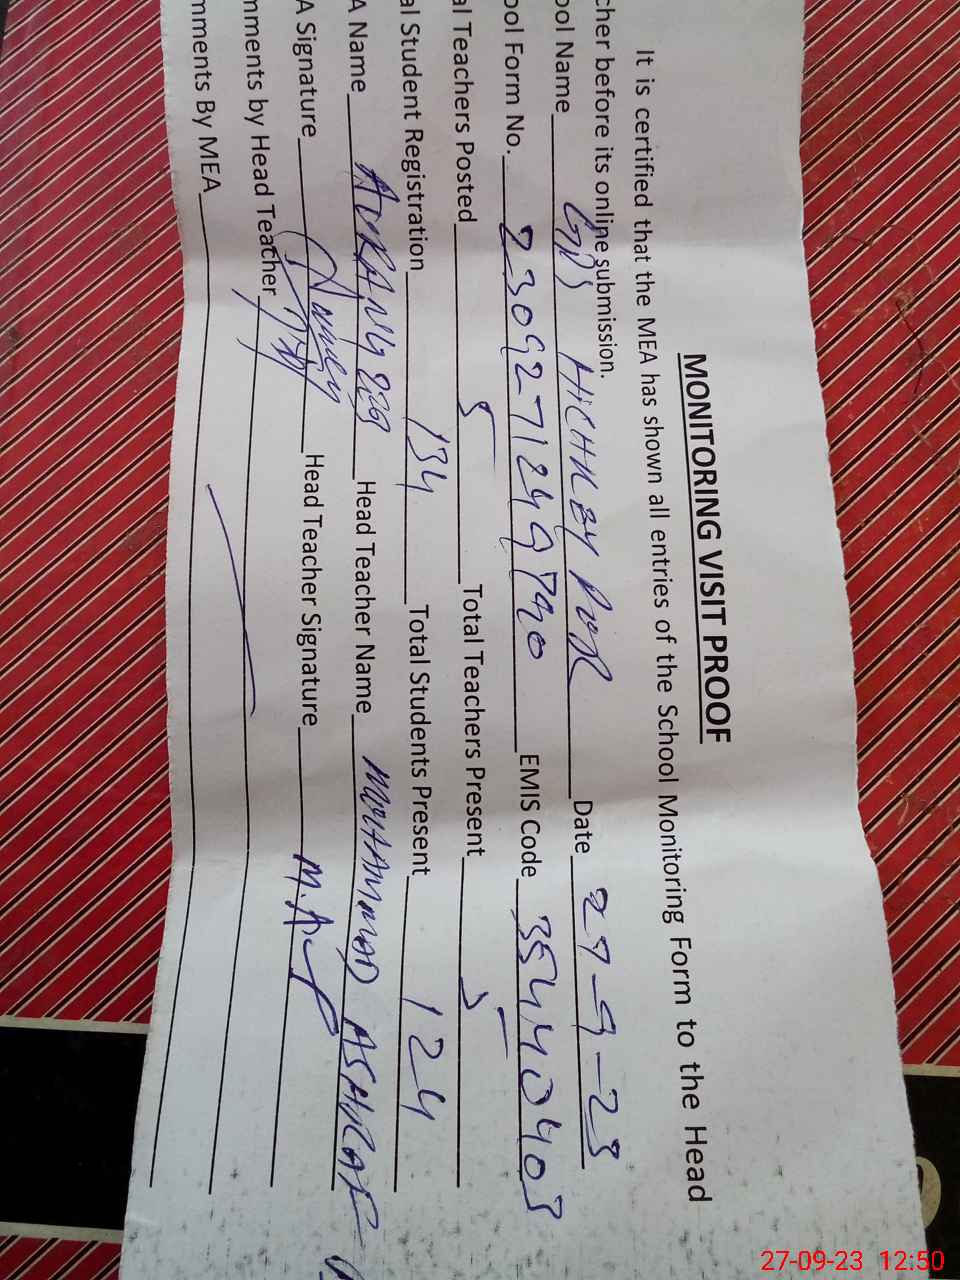 MONITORING VISIT PROOF
It is certified that the MEA has shown all entries of the School Monitoring Form to the Head
cher before its online submission.
ool Name GPS Date 27-9-23
ool Form No. EMIS Code 35440403
al Teachers Posted 5 Total Teachers Present 5
al Student Registration 134 Total Students Present 124
A Name AURANGZEB Head Teacher Name MUHAMMAD ASHRAF
A Signature Head Teacher Signature
mments by Head Teacher
mments By MEA
27-09-23 12:50